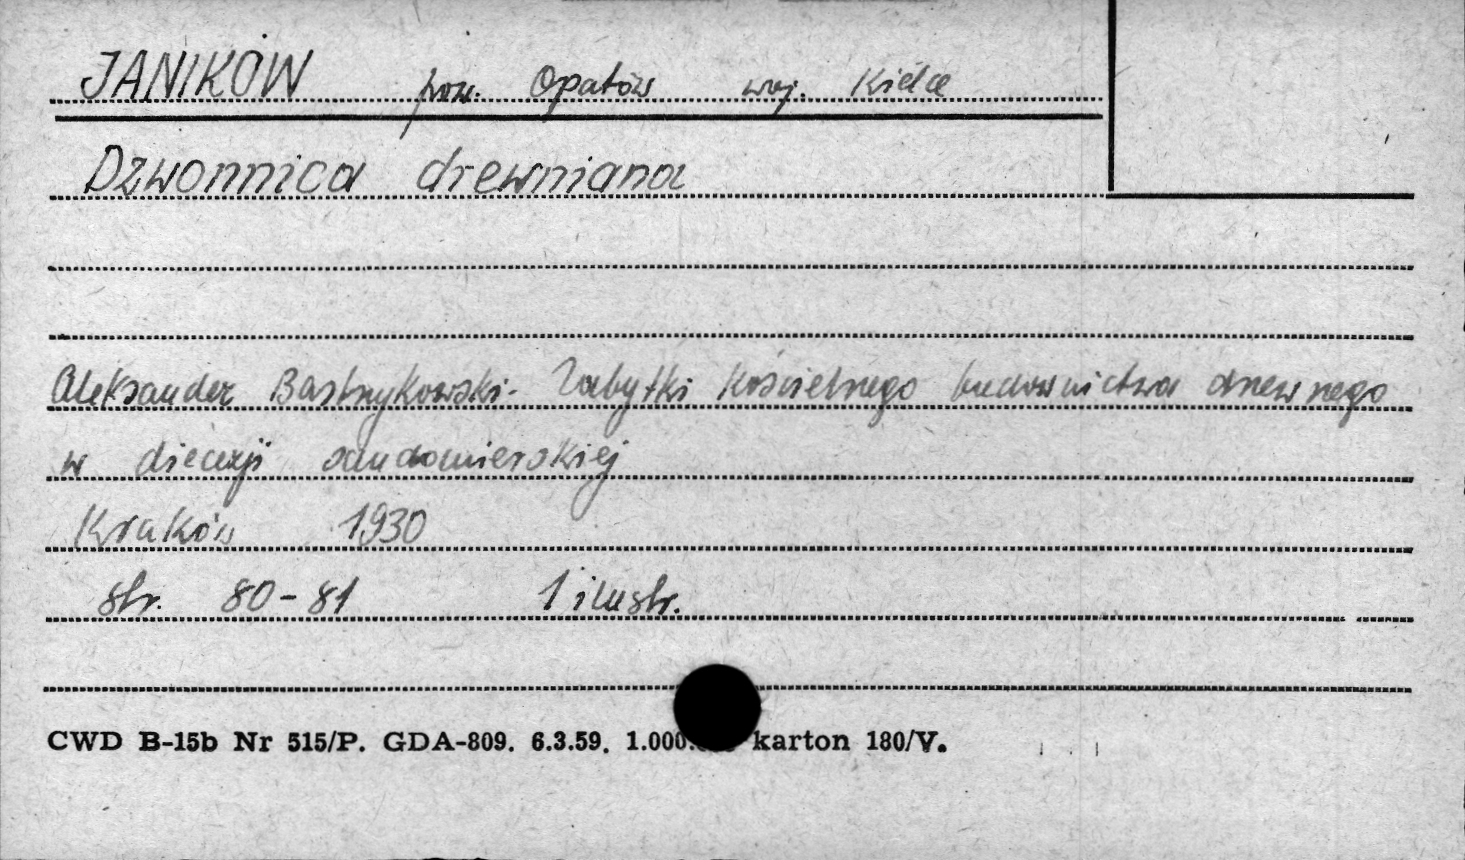 JANIKÓW pow. Opatów woj. Kielce
Dzwonnica drewniana
Aleksander Bastrzykowski - Zabytki kościelnego budownictwa drewnego
w diecezji sandomierskiej
Kraków 1930
str. 80-81 1 ilustr.
CWD B-15b Nr 515/P. GDA-809. 6.3.59. 1.000. karton 180/V.